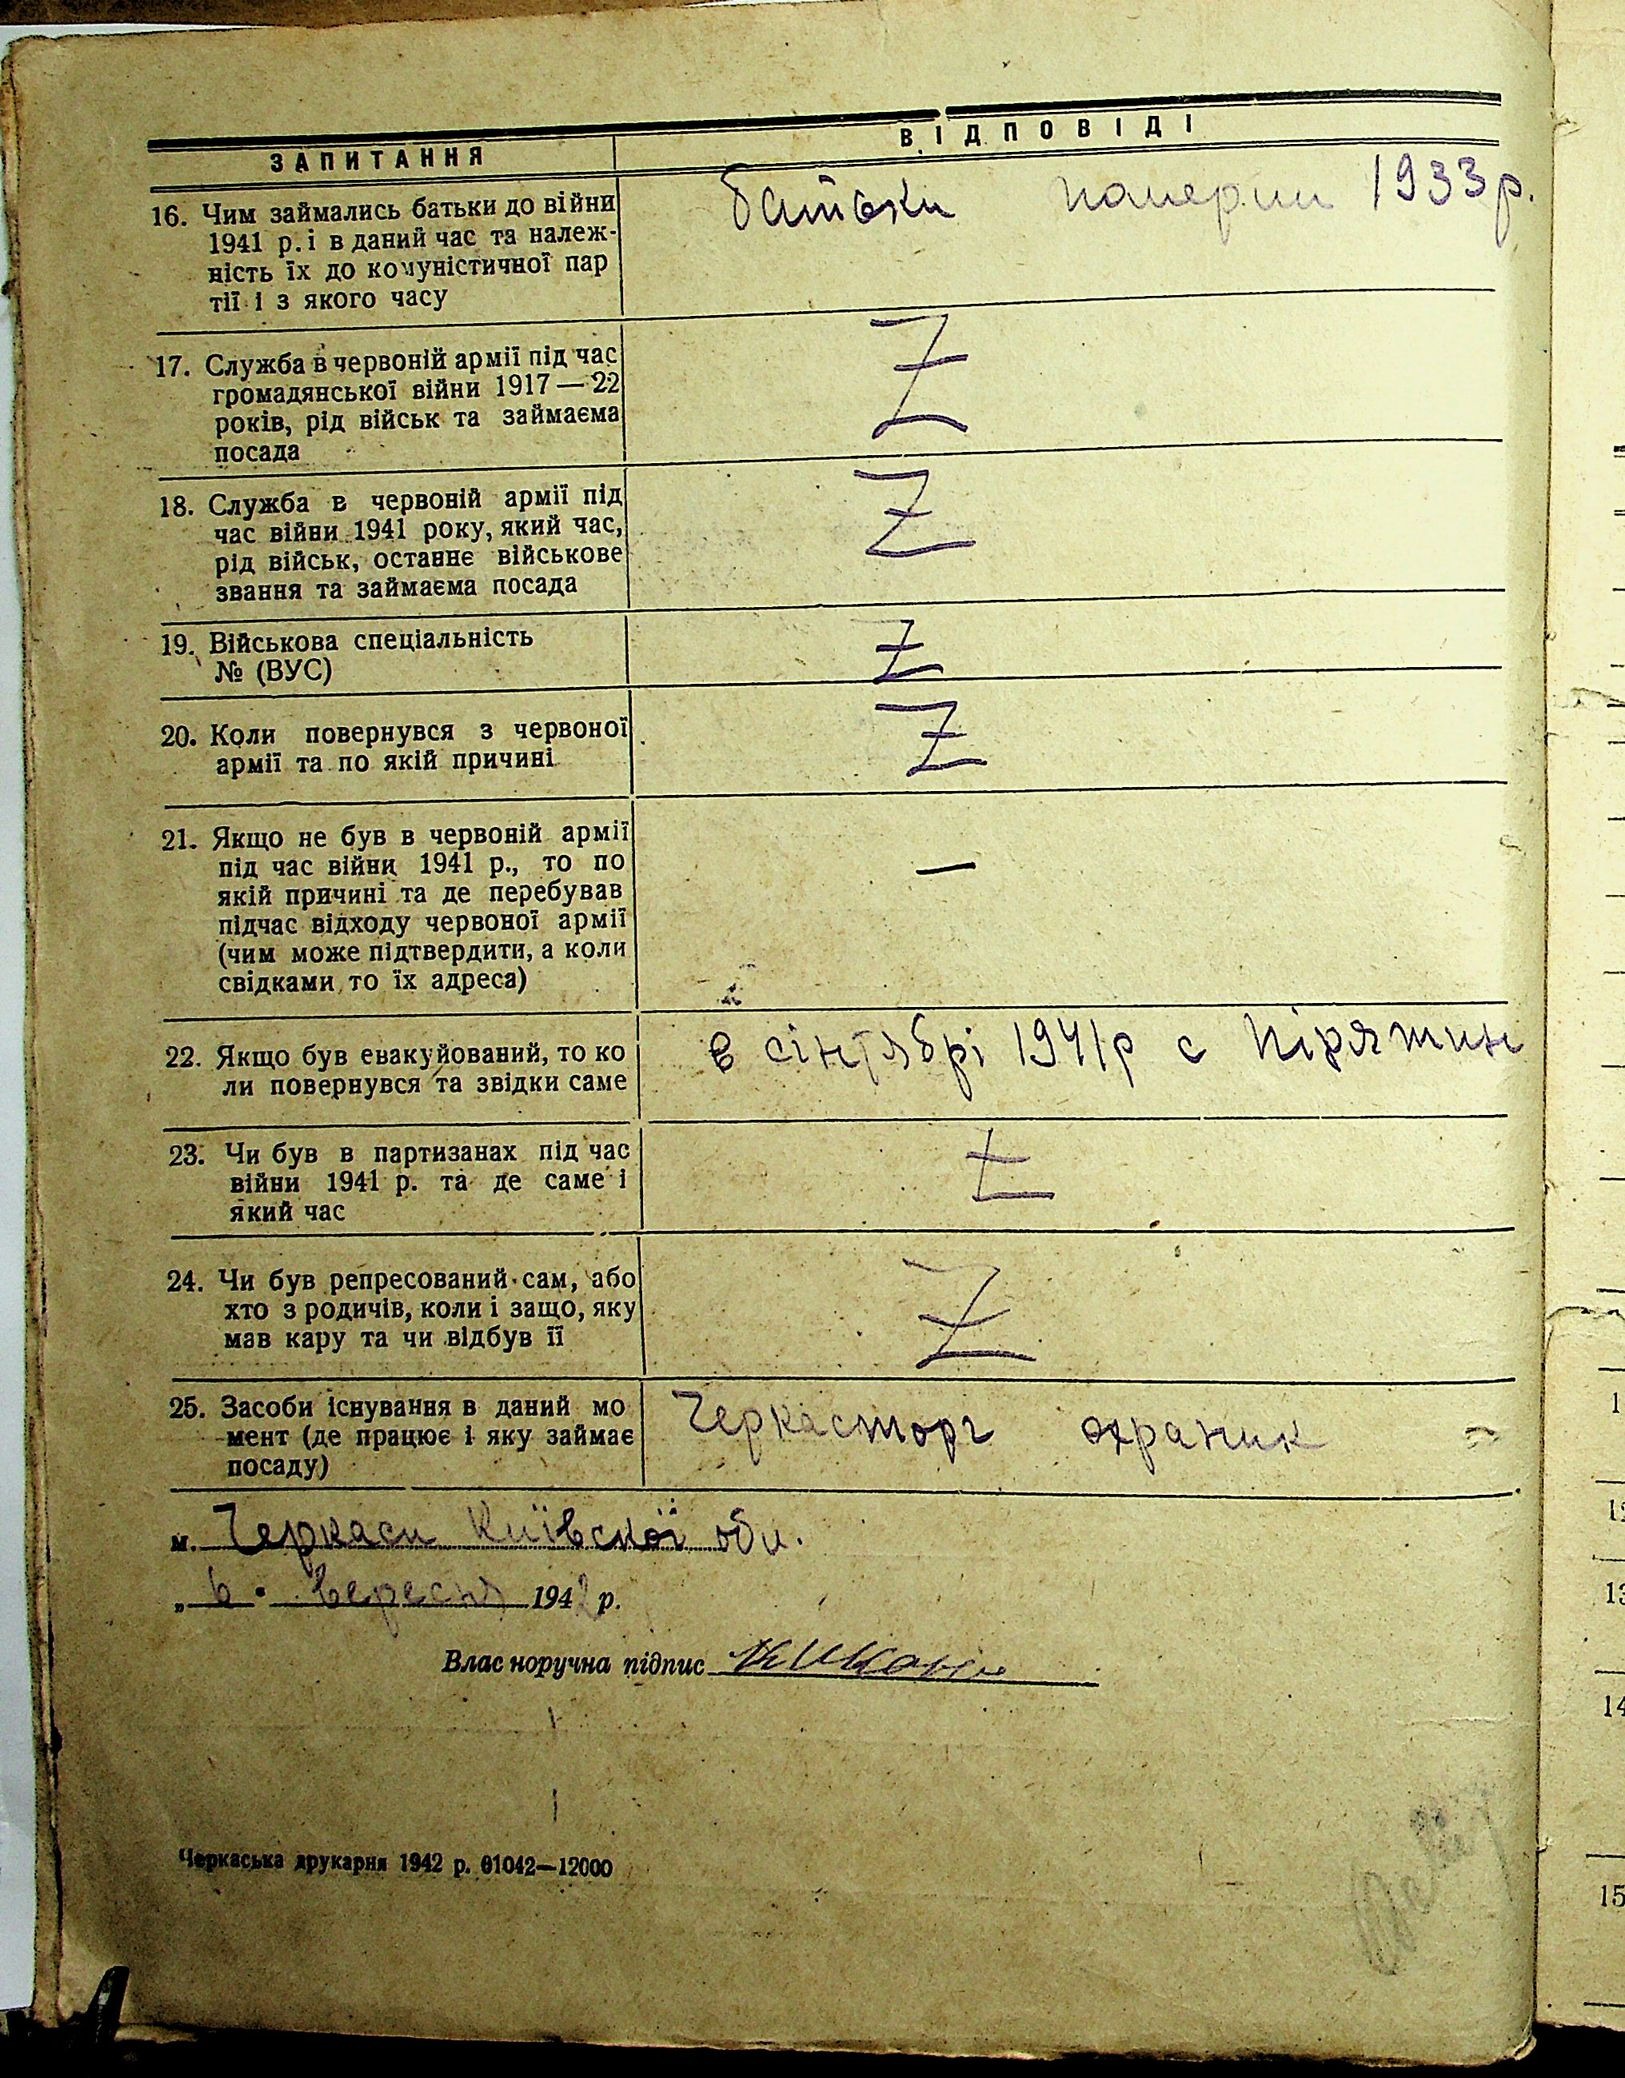 ЗАПИТАННЯ
ВІДПОВІДІ
16. Чим займались батьки до війни
1941 р. і в даний час та належ-
ність їх до комуністичної пар
тії і з якого часу
батьки померли 1933 р.
17. Служба в червоній армії під час
громадянської війни 1917 — 22
років, рід військ та займаєма
посада
Z
18. Служба в червоній армії під
час війни 1941 року, який час,
рід військ, останнє військове
звання та займаєма посада
Z
19. Військова спеціальність
№ (ВУС)
Z
20. Коли повернувся з червоної
армії та по якій причині
Z
21. Якщо не був в червоній армії
під час війни 1941 р., то по
якій причині та де перебував
підчас відходу червоної армії
(чим може підтвердити, а коли
свідками то їх адреса)
—
22. Якщо був евакуйований, то ко
ли повернувся та звідки саме
в сінтябрі 1941р с Пірятин
23. Чи був в партизанах під час
війни 1941 р. та де саме і
який час
Z
24. Чи був репресований сам, або
хто з родичів, коли і защо, яку
мав кару та чи відбув її
Z
25. Засоби існування в даний мо
мент (де працює і яку займає
посаду)
Черкасторг охраник
м. Черкаси Київскої обл.
„6" вересня 1942 р.
Влас норучна підпис
Черкаська друкарня 1942 р. 01042—12000
1
12
13
14
15